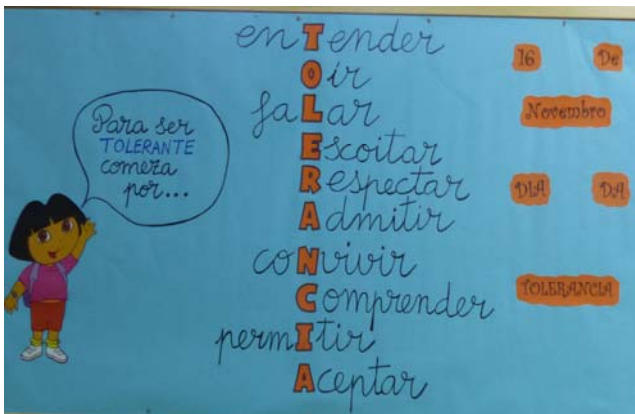 Para ser
TOLERANTE
comeza
por...
enTender
Oír
faLar
Escoitar
Respectar
Admitir
coNvivir
Comprender
permItir
Aceptar
16 De
Novembro
DIA DA
TOLERANCIA